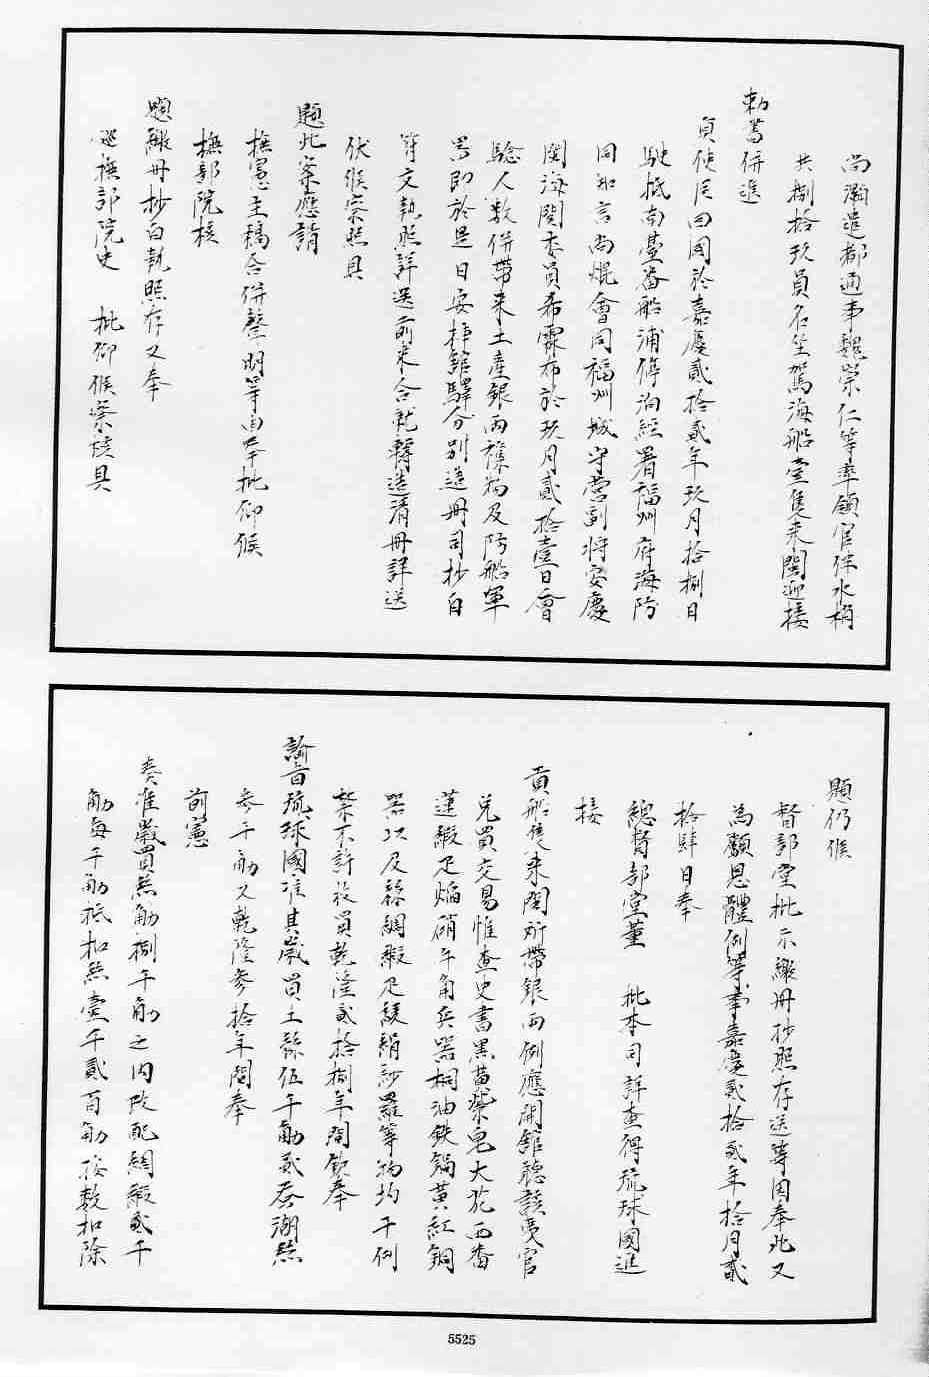 尚灝遣都通事魏崇仁等率領官伴水梢
共捌拾玖員名坐駕海船壹隻来閩迎接
勅書併進
貢使臣囬國於嘉慶貳拾貳年玖月拾捌日
駛抵南臺番船浦停泊經署福州府海防
同知言尚焜會同福州城守營副将安慶
閩海関委員希霖布於玖月貳拾壹日會
驗人数併帶来土産銀両雜物及防船軍
器即於是日安揷舘驛分别造冊司抄白
符文執照詳送前来合就轉造清冊詳送
伏候察照具
題此案應請
撫憲主稿合併聲明等由奉批仰候
撫部院核
題繳冊抄白執照存又奉
巡撫部院史 批仰候察核具
題仍候
督部堂批示繳冊抄照存送等因奉此又
為願恩體例等事嘉慶貳拾貳年拾月貳
拾肆日奉
總督部堂董 批本司詳查得琉球國進
接
貢船隻来閩所帶銀両例應開舘聽該夷官
兌買交易惟查史書黑黄紫皂大花西番
蓮緞疋焔硝牛角兵器桐油鉄鍋黄紅銅
器以及絲綢緞疋綾絹紗羅等物均干例
禁不許收買乾隆貳拾捌年間欽奉
諭旨琉球國准其歲買土絲伍千觔貳蚕湖絲
参千觔又乾隆参拾年間奉
前憲
奏准歲買絲觔捌千觔之内改配綢緞貳千
觔每千觔抵扣絲壹千貳百觔按数扣除
5525